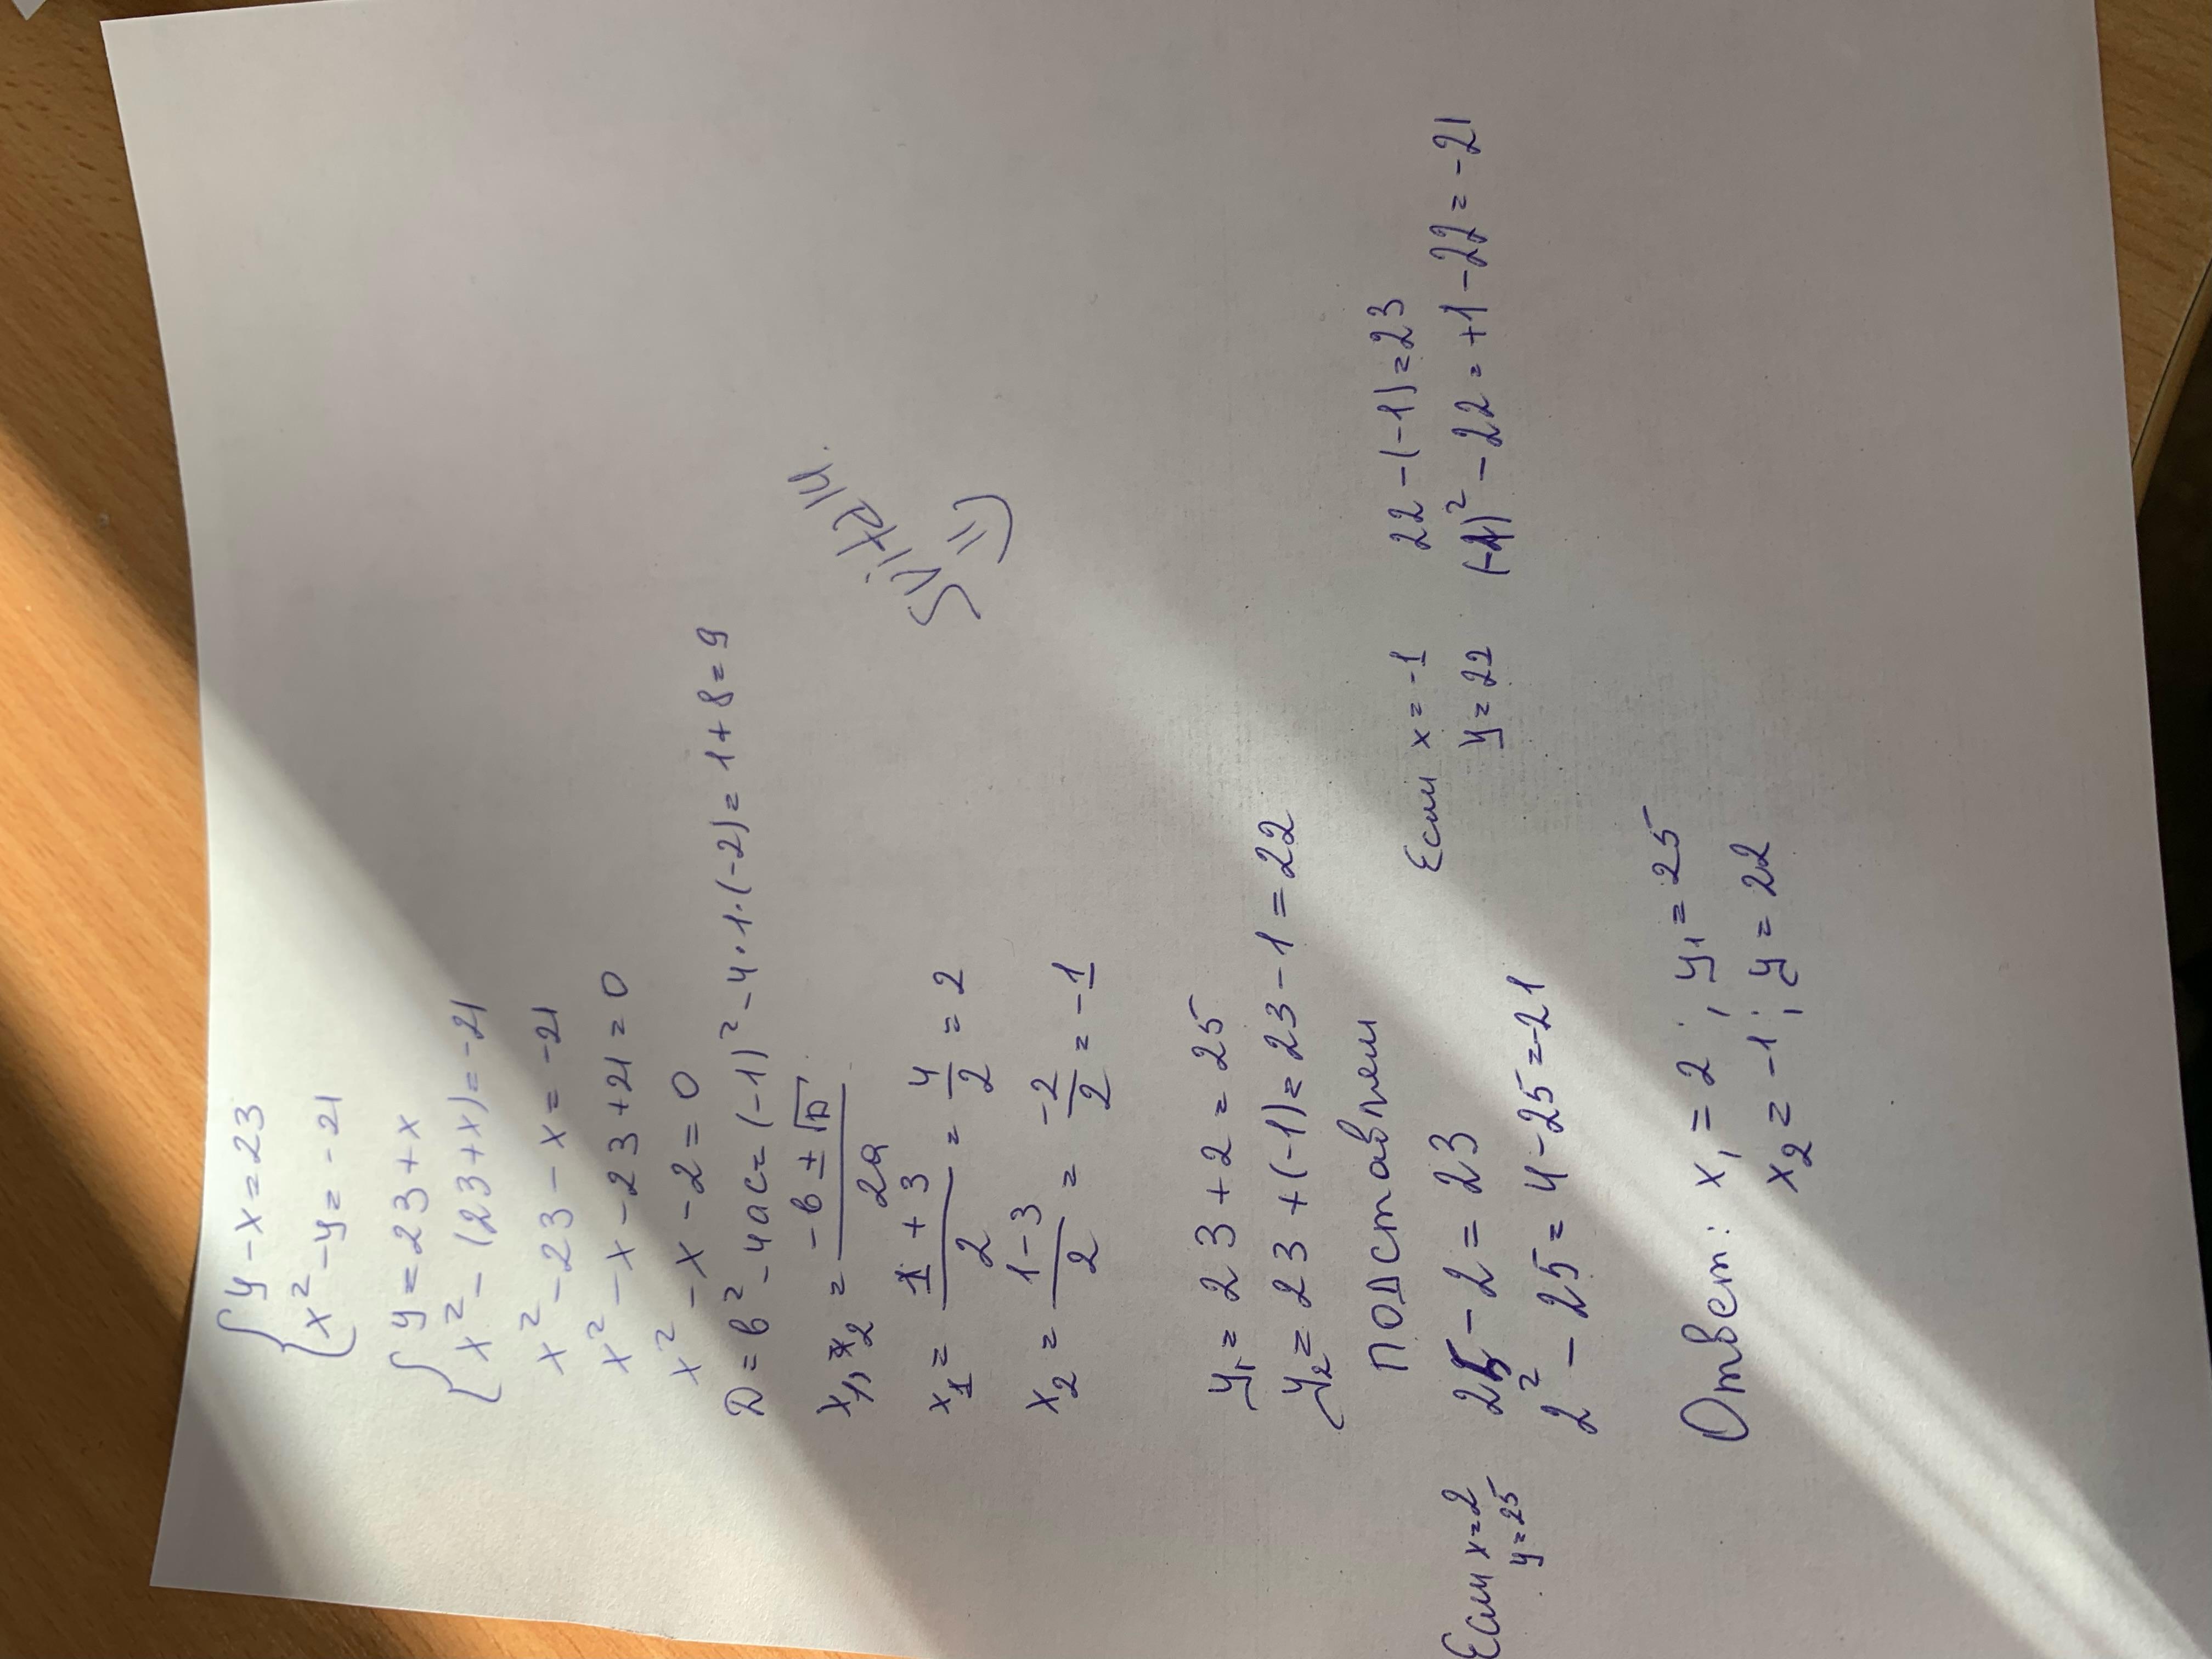 { y - x = 23
x² - y = -21
{ y = 23 + x
x² - (23 + x) = -21
x² - 23 - x = -21
x² - x - 23 + 21 = 0
x² - x - 2 = 0
D = b² - 4ac = (-1)² - 4·1·(-2) = 1 + 8 = 9
x₁,x₂ = (-b ± √D)/2a
x₁ = (1 + 3)/2 = 4/2 = 2
x₂ = (1 - 3)/2 = -2/2 = -1
svitaly.
=)
y₁ = 23 + 2 = 25
y₂ = 23 + (-1) = 23 - 1 = 22
подставляем
Если x = 2
y = 25
25 - 2 = 23
2² - 25 = 4 - 25 = -21
Если x = -1
y = 22
22 - (-1) = 23
(-1)² - 22 = +1 - 22 = -21
Ответ: x₁ = 2 ; y₁ = 25
x₂ = -1 ; y = 22